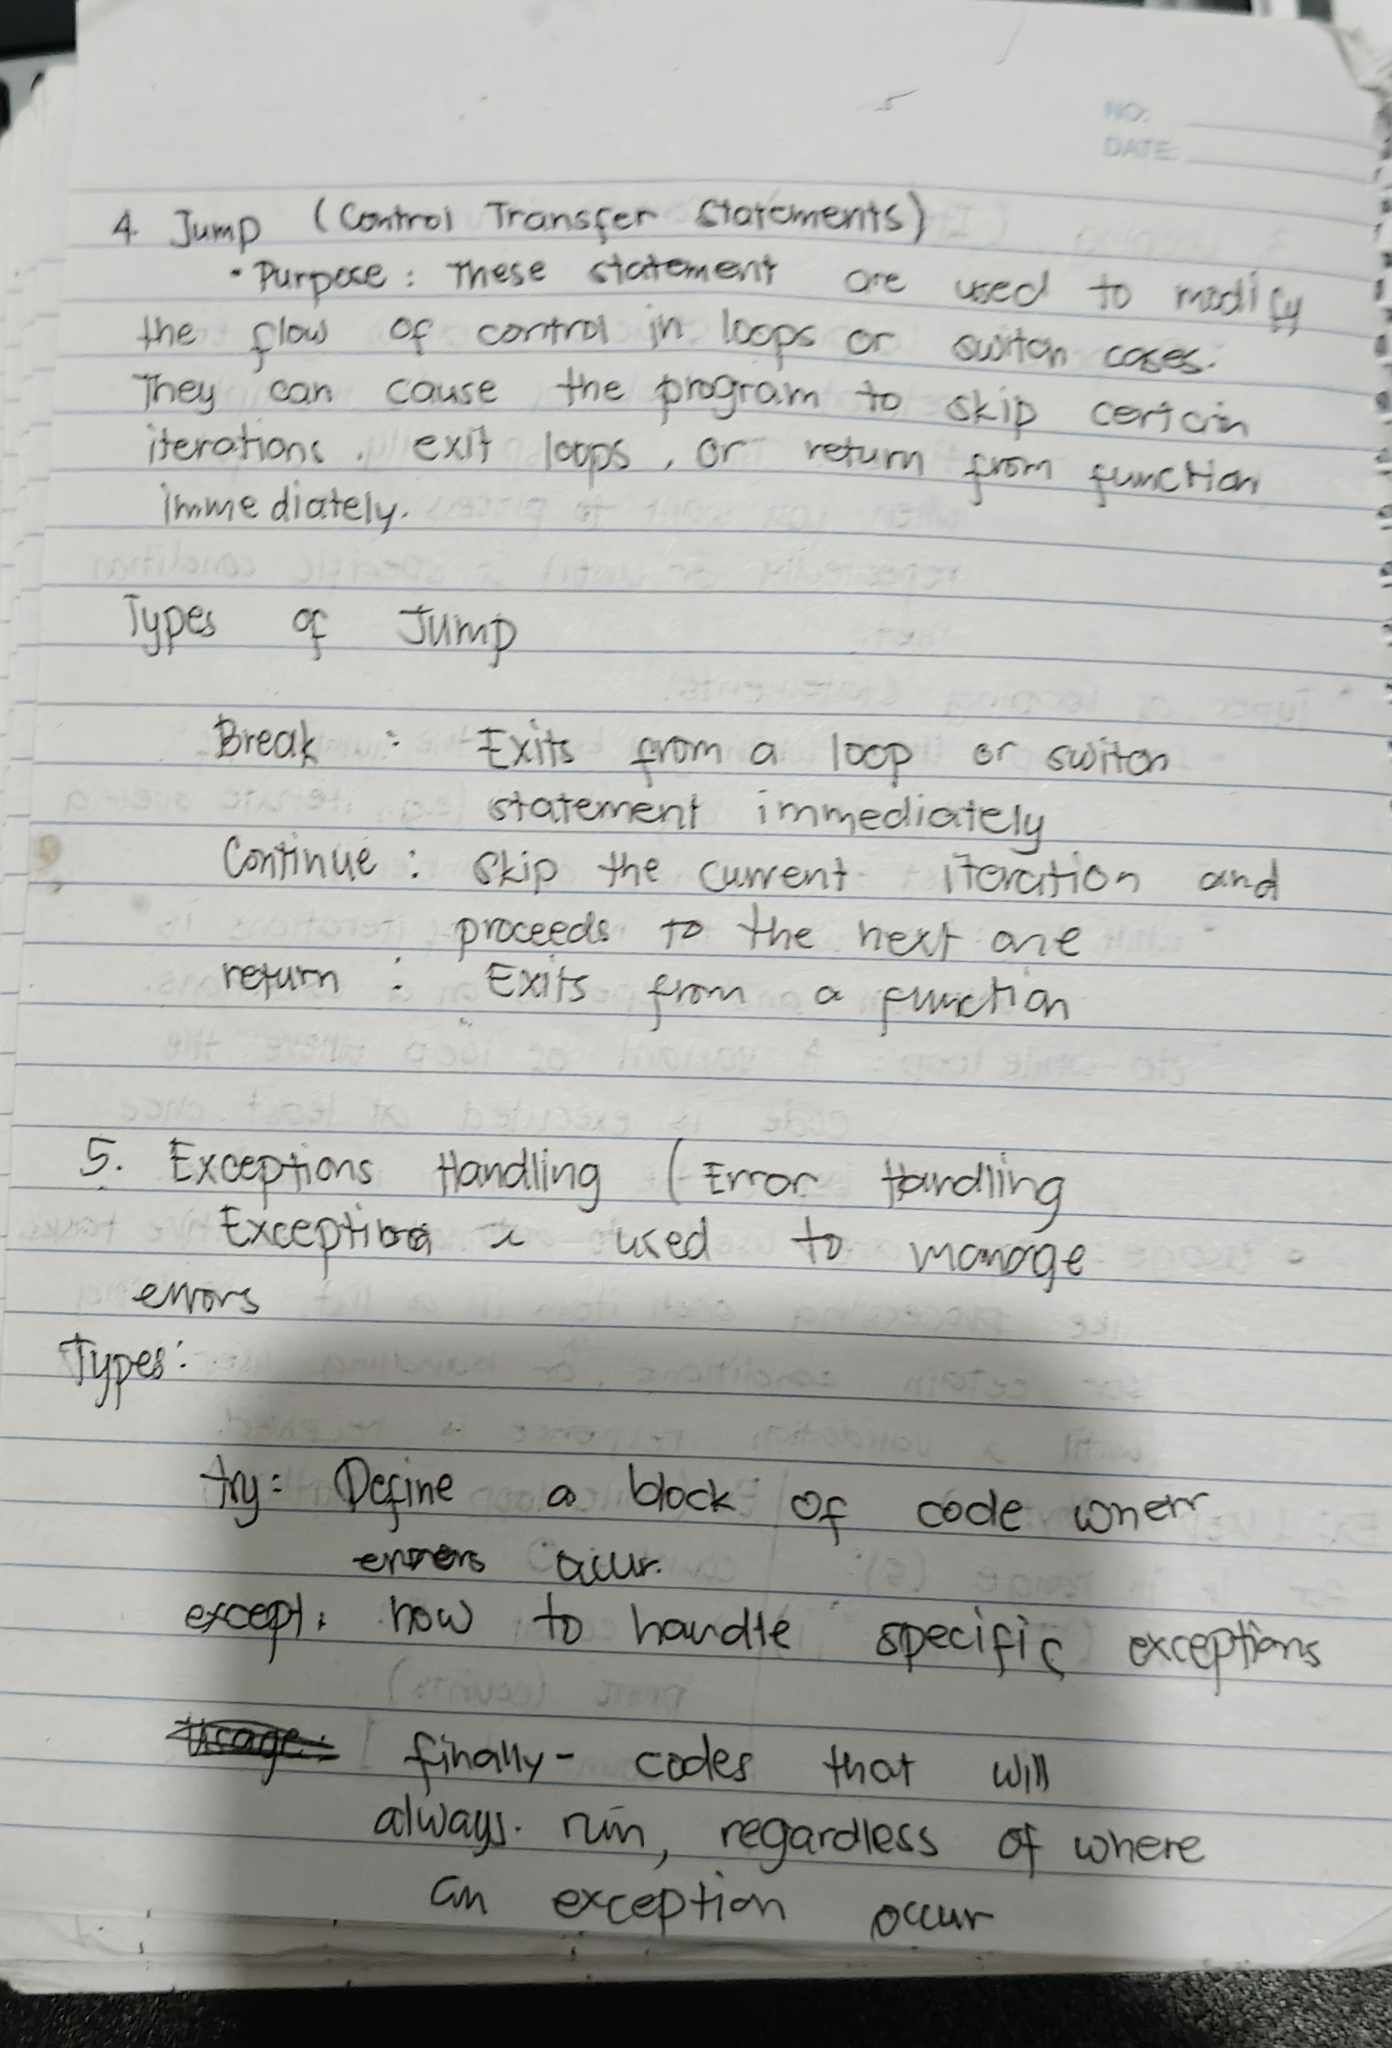 NO:
DATE:
4. Jump (Control Transfer Statements)
• Purpose: These statement are used to modify
the flow of control in loops or switch cases.
They can cause the program to skip certain
iterations, exit loops, or return from function
immediately.
Types of Jump
Break : Exits from a loop or switch
statement immediately
Continue : Skip the current iteration and
proceeds to the next one
return : Exits from a function
5. Exceptions Handling (Error Handling
Exception is used to manage
errors
Types:
try: Define a block of code when
errors occur.
except: how to handle specific exceptions
finally - codes that will
always run, regardless of where
an exception occur